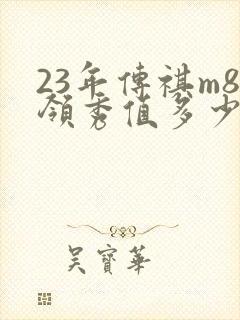 23年傳祺m8
領秀值多少
吴寶華